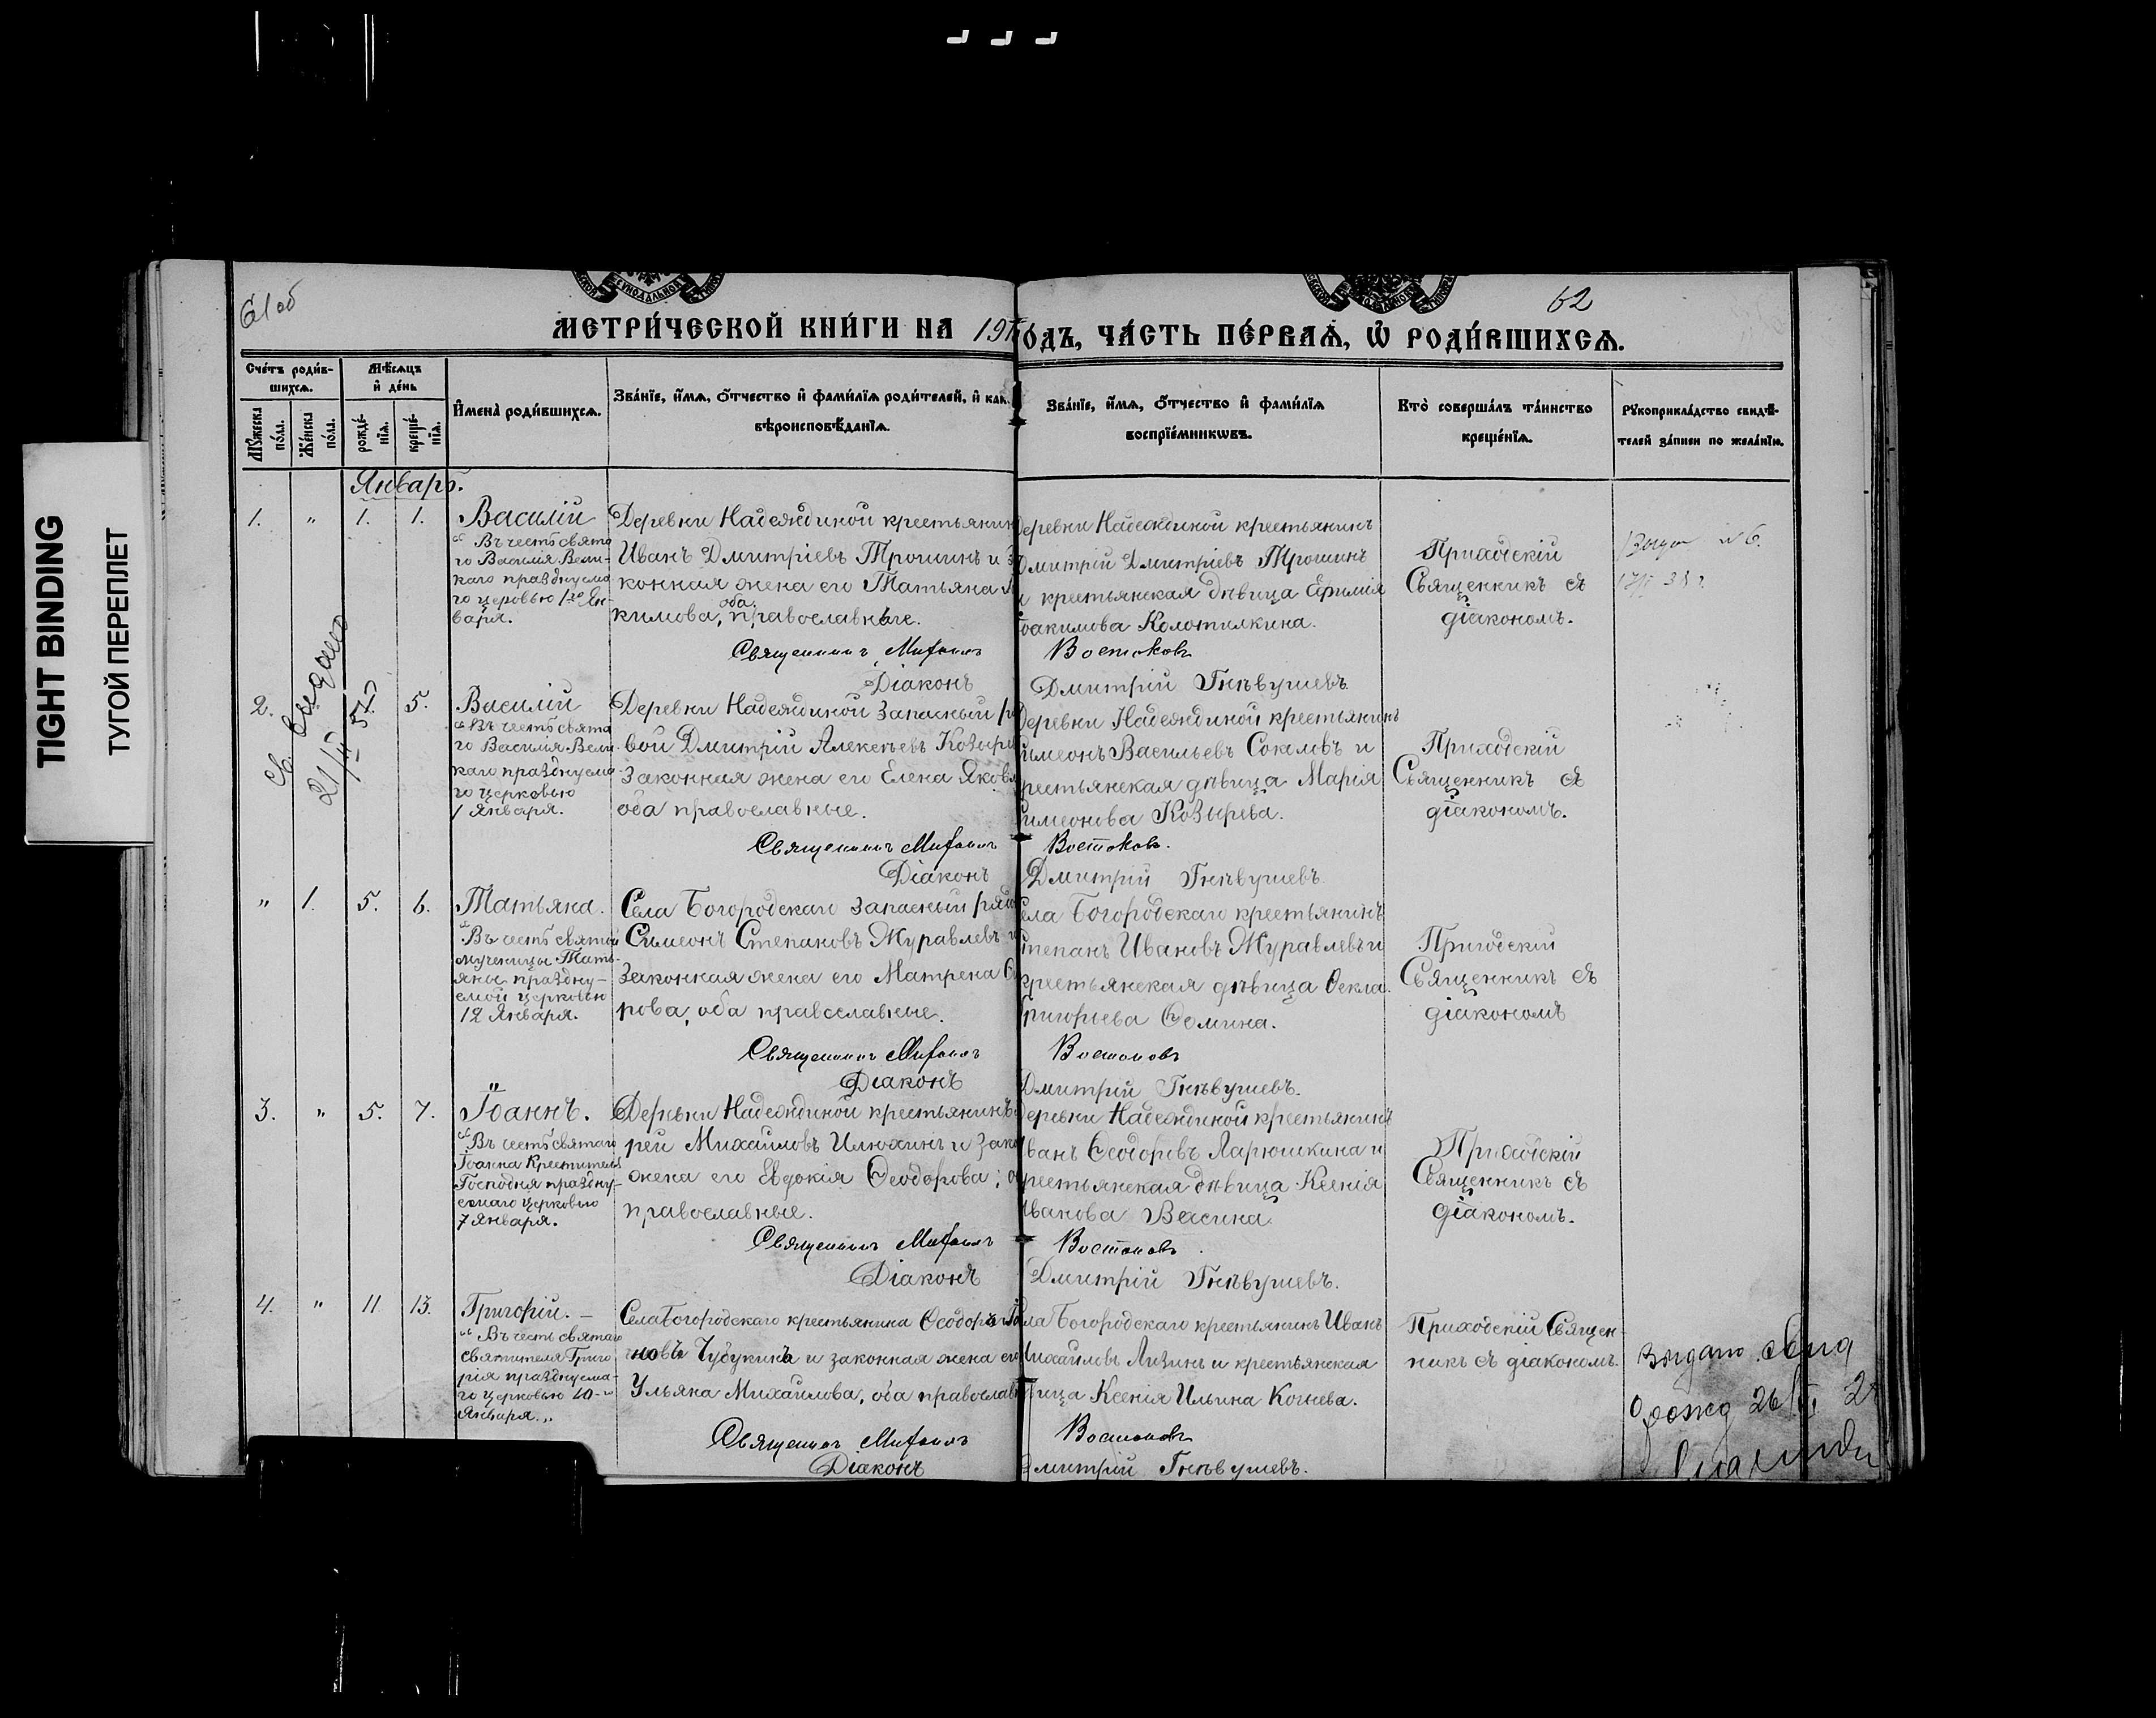 TIGHT BINDING
ТУГОЙ ПЕРЕПЛЕТ
61 об
62
МЕТРИ́ЧЕСКОЙ КНИ́ГИ НА 191
ОДЪ, ЧА́СТЬ ПЕ́РВАѦ, Ѡ҆ РОДИ́ВШИХСѦ.
Сче́тъ роди́в-
шихсѧ.
Мѣ́сѧцъ
и҆ де́нь
Мꙋ́жеска
по́ла.
Же́нска
по́ла.
рожде́-
нїѧ.
креще́-
нїѧ.
И҆мена̀ роди́вшихсѧ.
Зва́нїе, и҆́мѧ, ѻ҆́тчество и҆ фами́лїѧ роди́телей, и҆ как
вѣроисповѣ́данїѧ.
Зва́нїе, и҆́мѧ, ѻ҆́тчество и҆ фами́лїѧ
воспрїе́мникѡвъ.
Кто̀ соверша́лъ та́инство
креще́нїѧ.
Рꙋкоприкла́дство свидѣ́-
телей за́писи по жела́нїю.
Январь.
1. " 1. 1.
Василій
Въ честь свята
го Василія Вели-
каго празднуема
го церковью 1го Ян-
варя.
Деревни Надеждиной крестьянин
Иванъ Дмитріевъ Трошинъ и з
конная жена его Татьяна
кимова, оба православные.
Священникъ Мифодій
Діаконъ
Деревни Надеждиной крестьянинъ
Дмитрій Дмитріевъ Трошинъ
и крестьянская дѣвица Ефимія
Іоакимова Колотилкина.
Востоковъ
Дмитрій Гнѣвушевъ.
Приходскій
Священникъ съ
діакономъ.
№ 6.
св. выдано
21/II 57
2. 5. 5.
Василій
Въ честь свята
го Василія Вели
каго празднуема
го церковью
1 Января.
Деревни Надеждиной запасный ря
вой Дмитрій Алексѣевъ Козыр
законная жена его Елена Яковл
оба православные.
Священникъ Мифодій
Діаконъ
Деревни Надеждиной крестьянинъ
Симеонъ Васильевъ Соколовъ и
крестьянская дѣвица Марія
Симеонова Козырева.
Востоковъ.
Дмитрій Гнѣвушевъ.
Приходскій
Священникъ съ
діакономъ.
" 1. 5. 6.
Татьяна.
Въ честь святой
мученицы Тать-
яны праздну-
емой церковью
12 Января.
Села Богородскаго запасный рядо
Симеонъ Степановъ Журавлевъ и
законная жена его Матрена
рова, оба православные.
Священникъ Мифодій
Діаконъ
Села Богородскаго крестьянинъ
Степанъ Ивановъ Журавлевъ и
крестьянская дѣвица Ѳекла
Григорьева Ѳомина.
Востоковъ
Дмитрій Гнѣвушевъ.
Приходскій
Священникъ съ
діакономъ
3. " 5. 7.
Іоаннъ.
Въ честь святаго
Іоанна Крестителя
Господня праздну-
емаго церковью
7 Января.
Деревни Надеждиной крестьянинъ
рей Михайловъ Илюхинъ и зако
жена его Евдокія Ѳеодорова; о
православные.
Священникъ Мифодій
Діаконъ
Деревни Надеждиной крестьянинъ
Иванъ Ѳеодоровъ Ларюшкина и
крестьянская дѣвица Ксенія
Иванова Васина.
Востоковъ
Дмитрій Гнѣвушевъ.
Приходскій
Священникъ съ
діакономъ.
4. " 11. 13.
Григорій. -
Въ честь святаго
святителя Григо
рія празднуема-
го церковью 10-го
Января.
Села Богородскаго крестьянина Ѳеодоръ
новъ Чубукинъ и законная жена его
Ульяна Михайлова, оба православн
Священникъ Мифодій
Діаконъ
Села Богородскаго крестьянинъ Иванъ
Михайловъ Лизинъ и крестьянская
вица Ксенія Ильина Кочнева.
Востоковъ
Дмитрій Гнѣвушевъ.
Приходскій Священ-
никъ съ діакономъ.
Выдано свид
о рожд 26